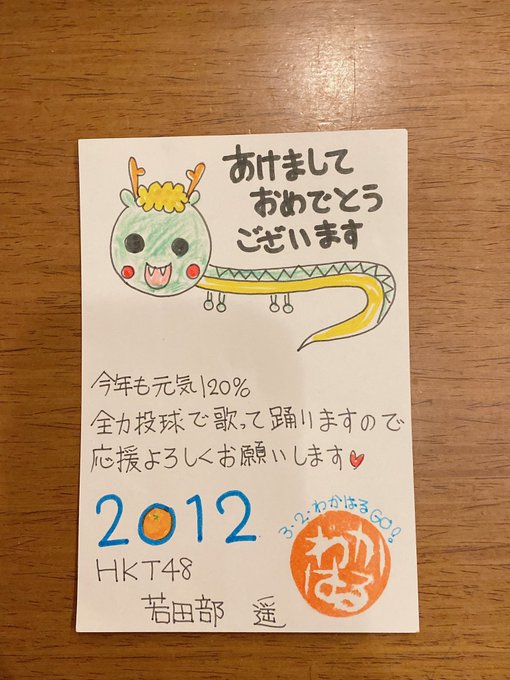 あけまして
おめでとう
ございます
今年も元気120%
全力投球で歌って踊りますので
応援よろしくお願いします♥
2012
3・2・わかはるGO!
わか
はる
HKT48
若田部 遥